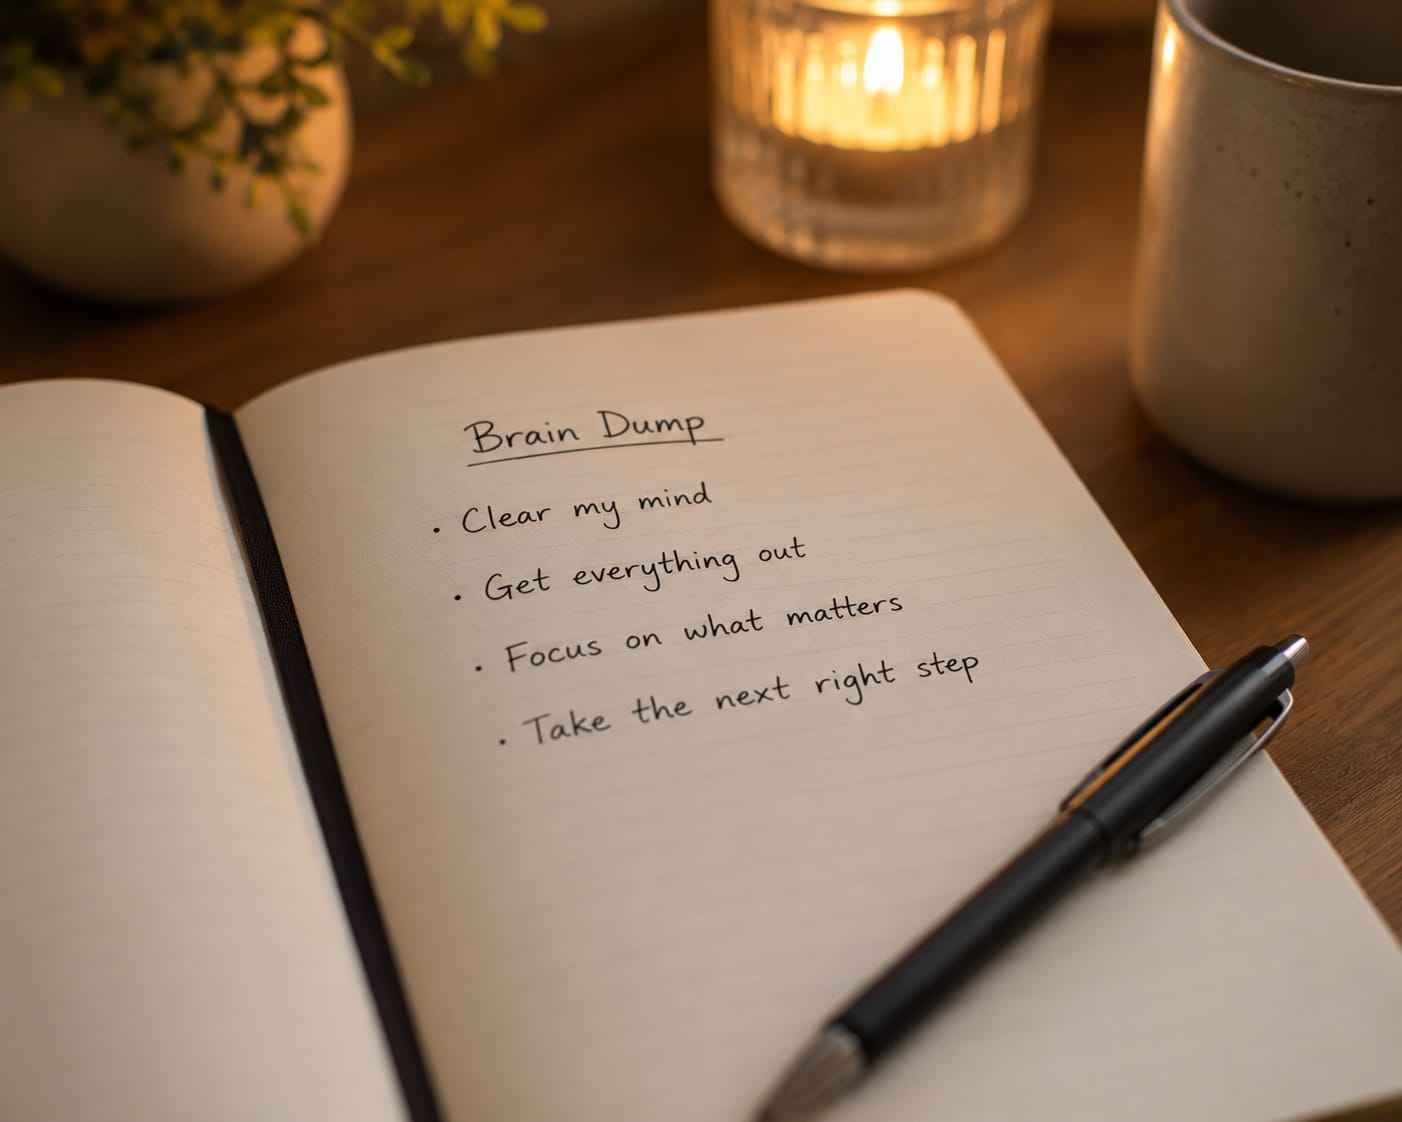 Brain Dump
· Clear my mind
· Get everything out
· Focus on what matters
· Take the next right step